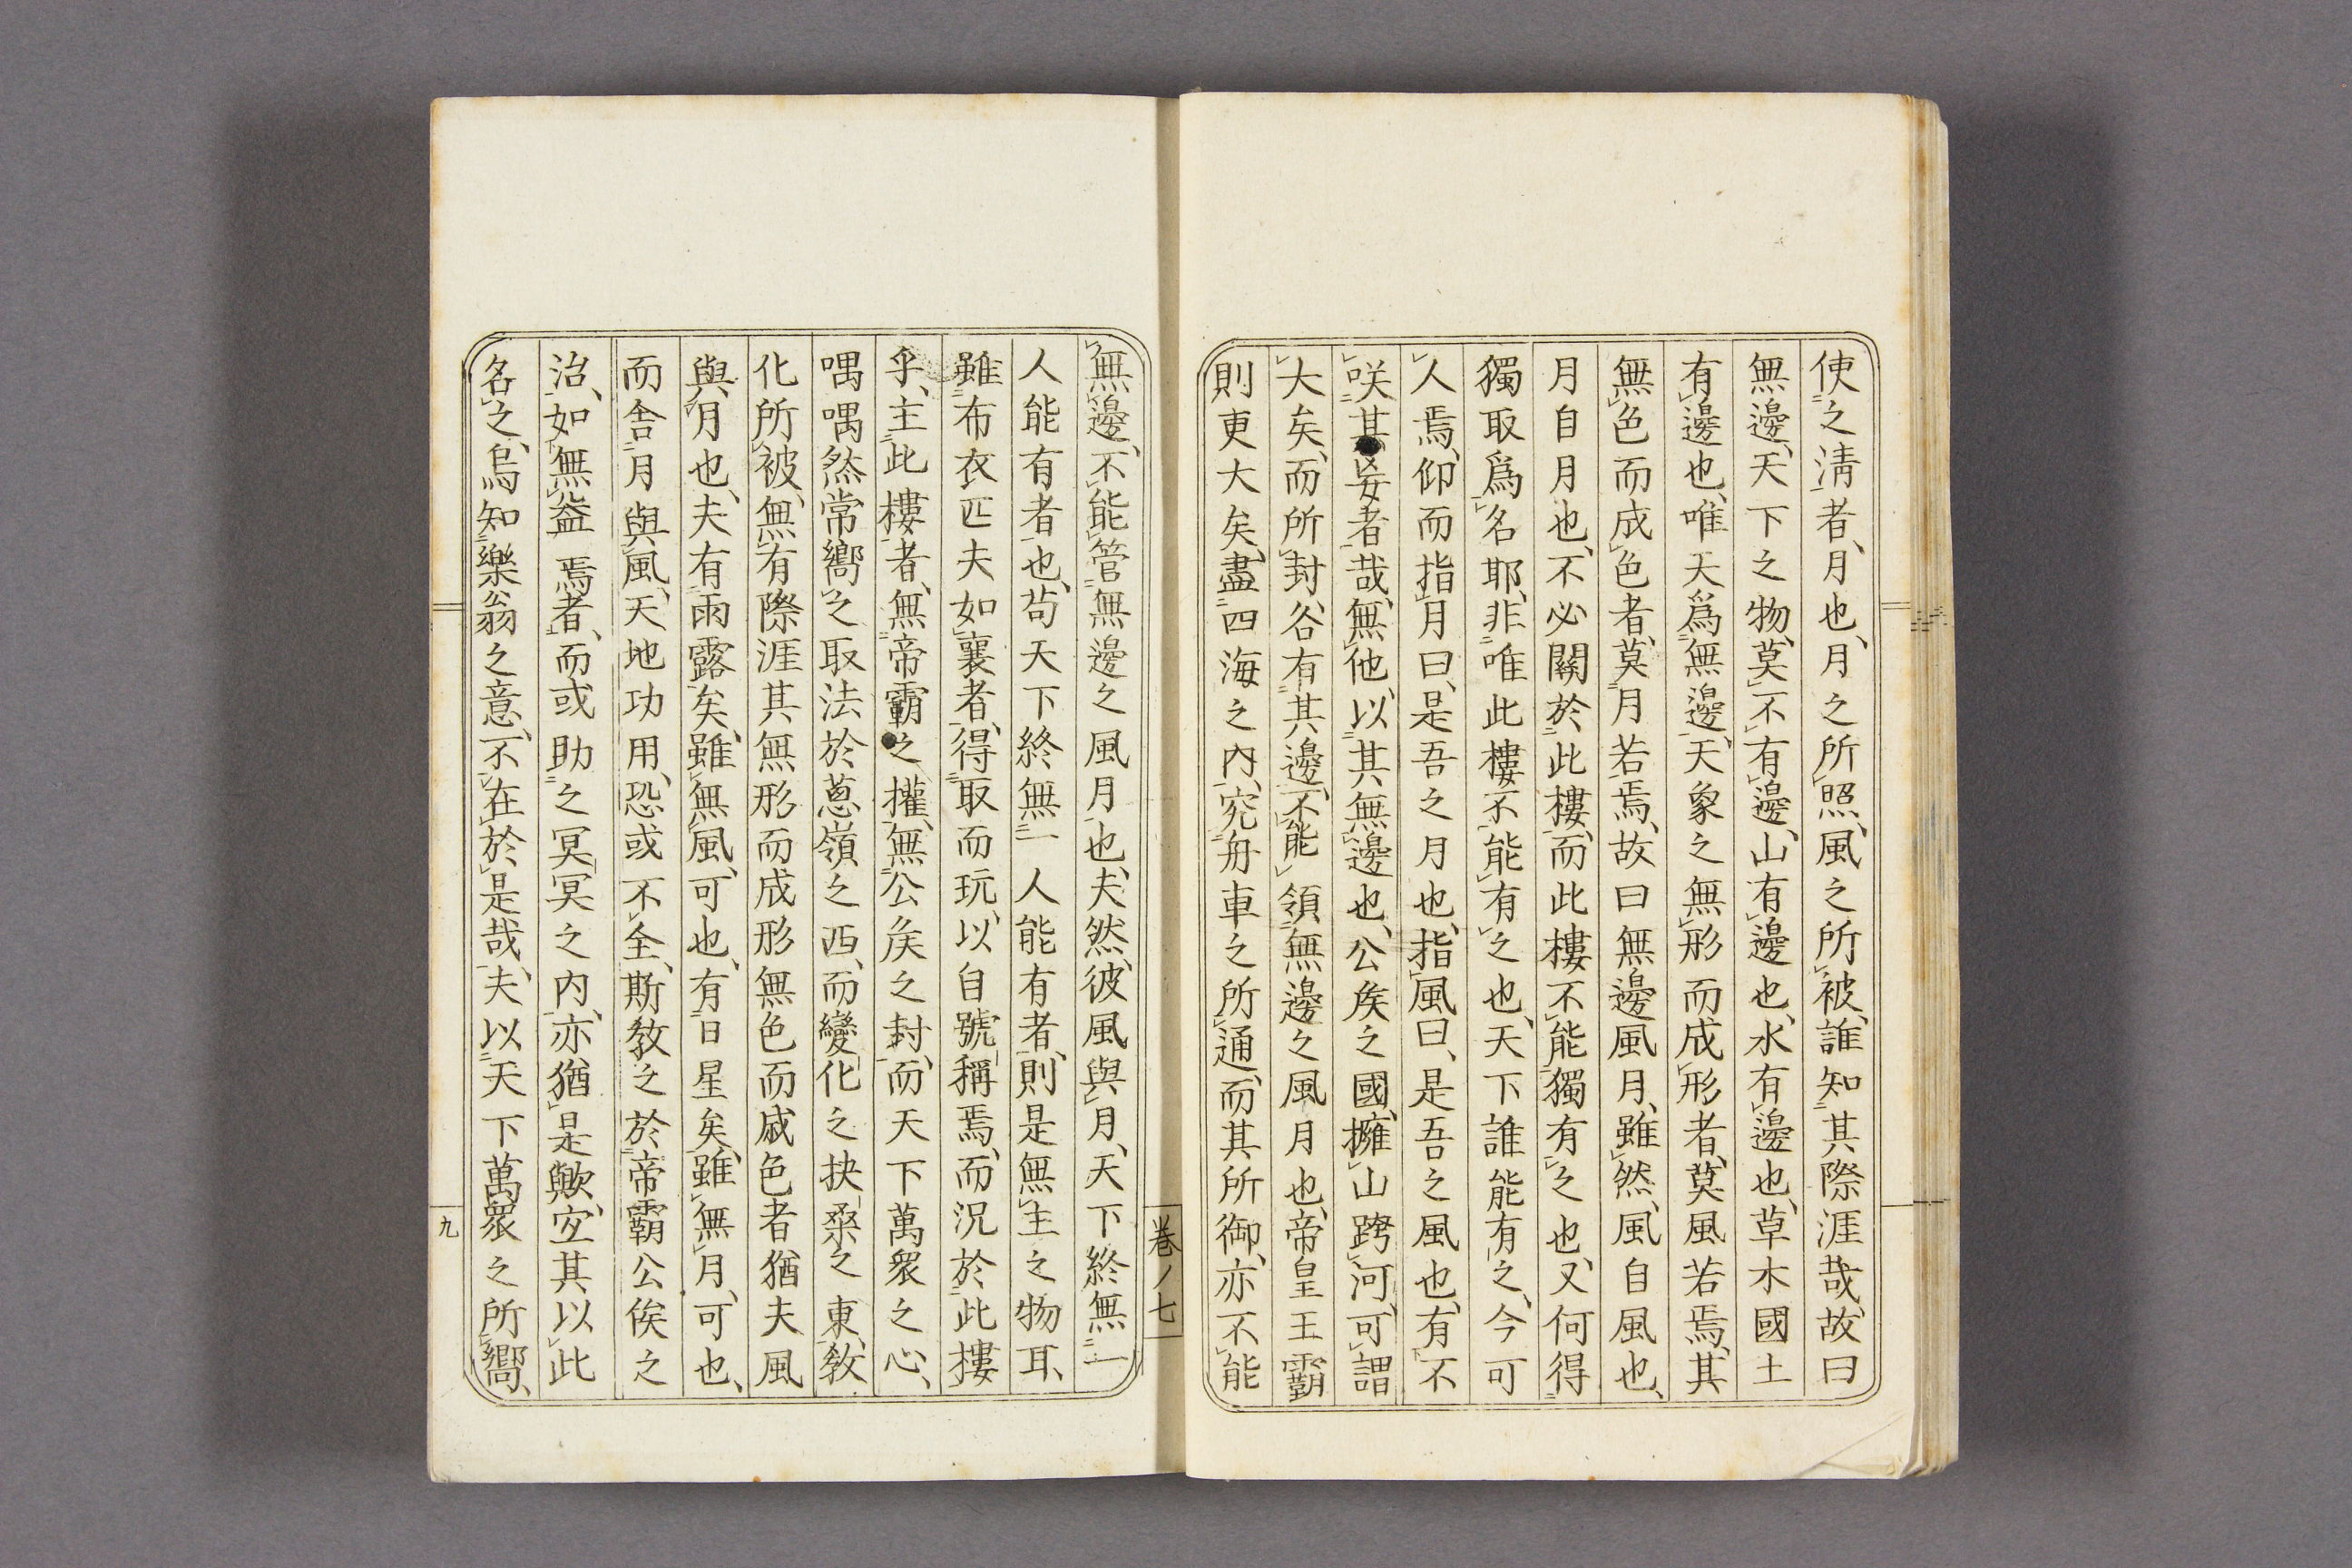 使之淸者、月也、月之所照、風之所被、誰知其際涯哉、故曰
無邊、天下之物、莫不有邊、山有邊也、水有邊也、草木國土
有邊也、唯天爲無邊、天象之無形而成形者、莫風若焉、其
無色而成色者、莫月若焉、故曰無邊風月、雖然、風自風也、
月自月也、不必關於此樓、而此樓不能獨有之也、又何得
獨取爲名耶、非唯此樓不能有之也、天下誰能有之、今可
人焉、仰而指月曰、是吾之月也、指風曰、是吾之風也、有不
咲其妄者哉、無他、以其無邊也、公矦之國、擁山跨河、可謂
大矣、而所封、各有其邊、不能領無邊之風月也、帝皇王霸
則更大矣、盡四海之內、究舟車之所通、而其所御、亦不能
無邊、不能管無邊之風月也、夫然、彼風與月、天下終無一
人能有者也、苟天下終無一人能有者、則是無主之物耳、
雖布衣匹夫如襄者、得取而玩、以自號稱焉、而況於此樓
乎、主此樓者、無帝霸之權、無公矦之封、而天下萬衆之心、
喁喁然常嚮之取法於蔥嶺之西、而變化之抉桑之東、敎
化所被、無有際涯其無形而成形無色而成色者猶夫風
與月也、夫有雨露矣、雖無風、可也、有日星矣、雖無月、可也、
而舍月與風、天地功用、恐或不全、斯敎之於帝霸公侯之
治、如無益焉者、而或助之冥冥之內、亦猶是歟、宐其以此
名之、烏知樂翁之意、不在於是哉、夫以天下萬衆之所嚮、
卷ノ七
九